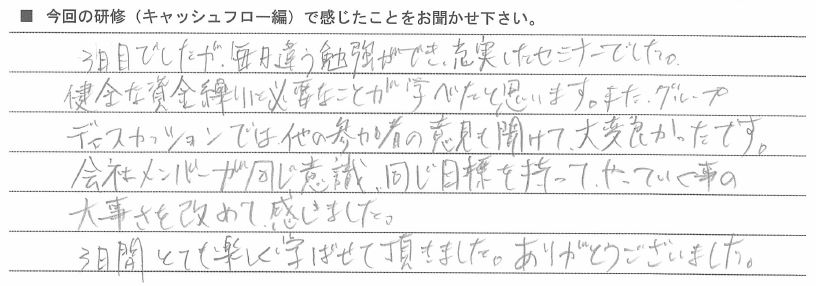 ■ 今回の研修（キャッシュフロー編）で感じたことをお聞かせ下さい。
3日目でしたが、毎日違う勉強ができ、充実したセミナーでした。
健全な資金繰りに必要なことが学べたと思います。また、グループ
ディスカッションでは、他の参加者の意見も聞けて、大変良かったです。
会社メンバーが同じ意識、同じ目標を持って、やっていく事の
大事さを改めて、感じました。
3日間とても楽しく学ばせて頂きました。ありがとうございました。